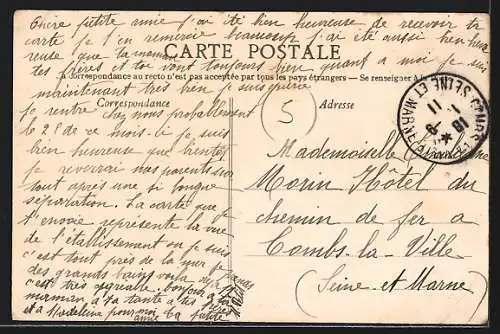 Chère petite amie j'ai été bien heureuse de recevoir ta
carte je t'en remercie beaucoup j'ai été aussi bien heu
reuse que ta maman
des frères et toi vont toujours bien quant a moi je suis
CARTE POSTALE
La Correspondance au recto n'est pas acceptée par tous les pays étrangers — Se renseigner à la
maintenant très bien je suis
Correspondance
Adresse
je rentre chez nous probablement
le 28 de ce mois-ci je suis
bien heureuse que bientôt
je reverrai nos parents sur
tout après une si longue
séparation. La carte que je
t'envoie représente la vue
de l'établissement ou je suis
c'est tout près de la mer je prends
des grands bains voila
c'est très agréable. bonjour a ta
maman a ta tante a tes frères
et a Madeleine pour moi
amie ta petite
5
Mademoiselle
Morin Hôtel du
chemin de fer a
Combs-la-Ville
(Seine-et-Marne)
COMBS-LA-VILLE
SEINE ET MARNE
18
11